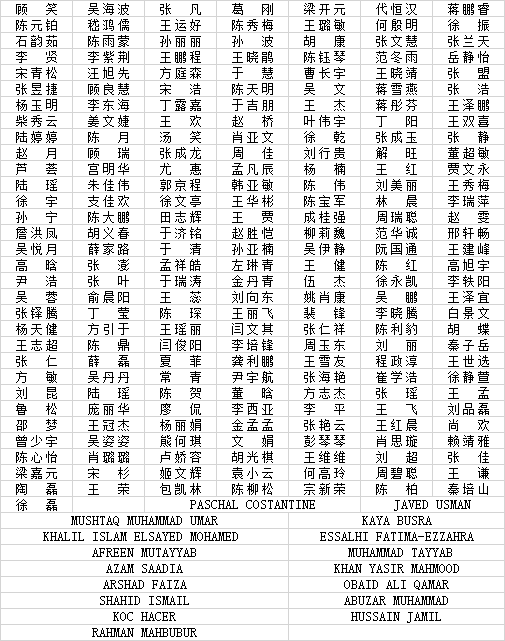 顾　笑 吴海波 张　凡 葛　刚 梁开元 代恒汉 蒋鹏睿
陈元铂 嵇鸿儒 王运好 陈秀梅 王璐敏 何殷明 徐　振
石韵茹 陈雨蒙 孙丽丽 孙　波 胡　康 张文慧 张兰天
李　贤 李紫荆 王鹏程 王晓鹃 陈钰琴 范冬雨 岳静怡
宋青松 汪旭先 方庭森 于　慧 曹长宇 王晓靖 张　盟
张昱捷 顾良慧 宋　浩 陈天明 吴　文 蒋雪燕 张　浩
杨玉明 李东海 丁露嘉 于吉朋 王　杰 蒋彤芬 王泽鹏
柴秀云 姜文婕 王　欢 赵　桥 叶伟宇 丁　阳 王双喜
陆婷婷 陈　月 汤　笑 肖亚文 徐　乾 张成玉 张　静
赵　月 顾　瑞 张成龙 周　佳 刘行贵 解　旺 董超敏
芦　荟 宫明华 尤　惠 孟凡辰 杨　楠 王　红 贾文永
陆　瑶 朱佳伟 郭京程 韩亚敏 陈　伟 刘美丽 王秀梅
徐　宇 支佳欢 徐文亭 王华彬 陈宝军 林　晨 李瑞萍
孙　宁 陈大鹏 田志辉 王　贾 成桂强 周瑞聪 赵　雯
詹洪凤 胡义春 于济铭 赵胜恺 柳莉魏 范华诚 邢轩畅
吴悦月 薛家路 于　清 孙亚楠 吴伊静 阮国通 王建峰
高　晗 张　澎 孟祥皓 左琳青 王　健 陈　红 高旭宇
尹　浩 张　叶 于瑞涛 金丹青 伍　杰 徐永凯 李轶阳
吴　蓉 俞晨阳 王　蕊 刘向东 姚肖康 吴　鹏 王泽宜
张铎腾 丁　莹 陈　琛 王丽飞 裴　锋 李晓腾 白景文
杨天健 方引于 王瑶丽 闫文其 张仁祥 陈利豹 胡　蝶
王志超 陈　鼎 闫俊阳 李培锋 周玉东 刘　丽 秦子岳
张　仁 薛　磊 夏　菲 龚利鹏 王雪友 程政淳 王世选
方　敏 吴丹丹 常　青 尹宇航 张海艳 崔学浩 徐静萱
刘　昆 陆　瑶 陈　贺 董　晗 方志杰 张　瑶 王　孟
鲁　松 庞丽华 廖　侃 李西亚 李　平 王　飞 刘品磊
邵　梦 王冠杰 杨丽娟 金孟孟 张艳云 王红晨 尚　欢
曾少宇 吴姿姿 熊何琪 文　娟 彭琴琴 肖思璇 赖靖雅
陈心怡 肖璐璐 卢娇容 胡光棋 王维维 刘　超 张　佳
梁嘉元 宋　杉 姬文辉 袁小云 何高玲 周碧聪 王　谦
陶　磊 王　荣 包凯林 陈柳松 宗新荣 陈　柏 秦培山
徐　磊 PASCHAL COSTANTINE JAVED USMAN
MUSHTAQ MUHAMMAD UMAR KAYA BUSRA
KHALIL ISLAM ELSAYED MOHAMED ESSALHI FATIMA-EZZAHRA
AFREEN MUTAYYAB MUHAMMAD TAYYAB
AZAM SAADIA KHAN YASIR MAHMOOD
ARSHAD FAIZA OBAID ALI QAMAR
SHAHID ISMAIL ABUZAR MUHAMMAD
KOC HACER HUSSAIN JAMIL
RAHMAN MAHBUBUR